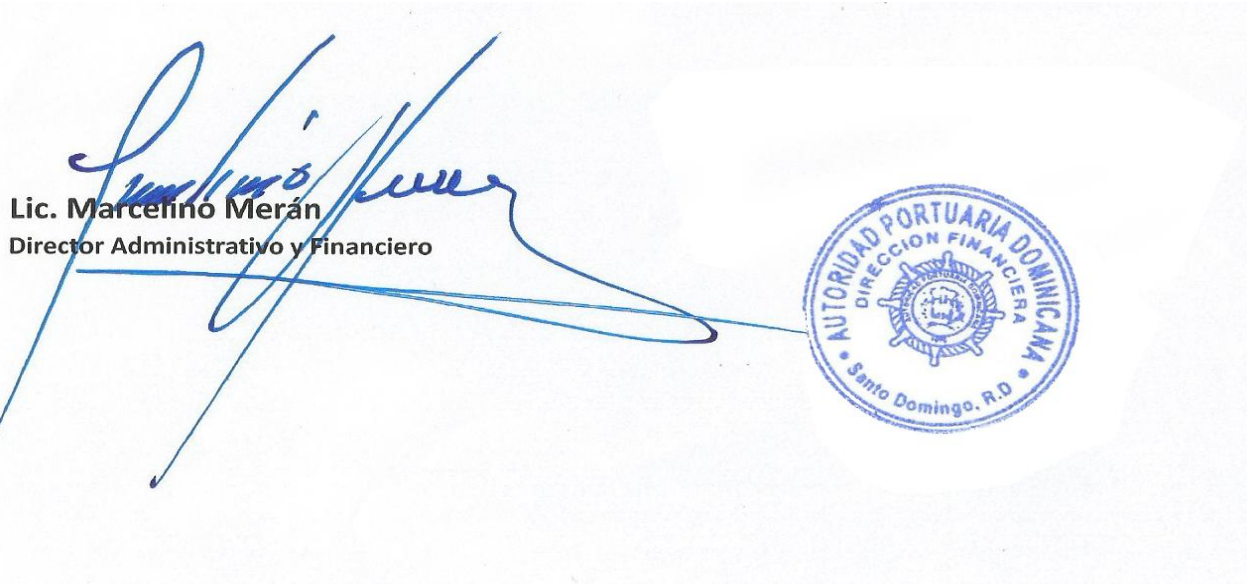 Lic. Marcelino Merán
Director Administrativo y Financiero
AUTORIDAD PORTUARIA DOMINICANA
DIRECCION FINANCIERA
Santo Domingo, R.D